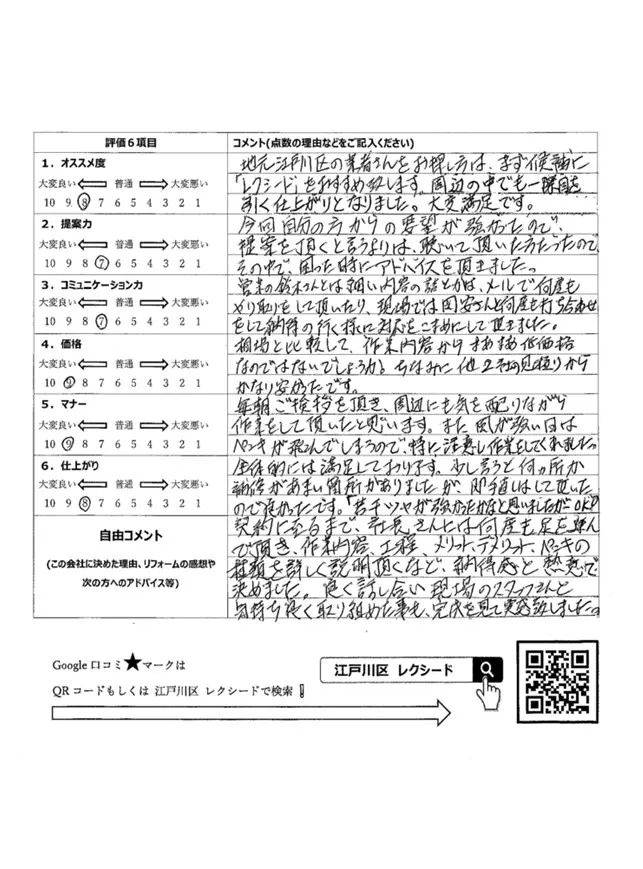 評価6項目
コメント(点数の理由などをご記入ください)
1．オススメ度
大変良い 普通 大変悪い
10 9 8 7 6 5 4 3 2 1
地元江戸川区の業者さんをお探し方は、まず候補に
「レクシード」をおすすめ致します。周辺の中でも一際目を
引く仕上がりとなりました。大変満足です。
2．提案力
大変良い 普通 大変悪い
10 9 8 7 6 5 4 3 2 1
今回自分の方からの要望が強かったので、
提案を頂くと言うよりは、聴いて頂いた方だったので、
その中で、困った時にアドバイスを頂きました。
3．コミュニケーション力
大変良い 普通 大変悪い
10 9 8 7 6 5 4 3 2 1
営業の鈴木さんとは細い内容の話とかは、メールで何度も
やり取りをして頂いたり、現場では国安さんと何度も打ち合わせ
をして納得の行く様に対応をこまめにして頂きました。
4．価格
大変良い 普通 大変悪い
10 9 8 7 6 5 4 3 2 1
相場と比較して、作業内容からまあまあ低価格
なのではないでしょうか？ちなみに他2社の見積りから
かなり安かったです。
5．マナー
大変良い 普通 大変悪い
10 9 8 7 6 5 4 3 2 1
毎朝ご挨拶を頂き、周辺にも気を配りながら
作業をして頂いたと思います。また風が強い日は
ペンキが飛んでしまうので、特に注意し作業をしてくれました。
6．仕上がり
大変良い 普通 大変悪い
10 9 8 7 6 5 4 3 2 1
全体的には満足しております。少し言うと何ヵ所か
補修があまい箇所がありましたが、即手直しはして頂した
ので良かったです。若干ツヤが強かったかなと思いましたがOKです
自由コメント
(この会社に決めた理由、リフォームの感想や
次の方へのアドバイス等)
契約に至るまで、社長さんには何度も足を運ん
で頂き、作業内容、工程、メリット、デメリット、ペンキの
種類を詳しく説明頂くなど、納得感と熱意で
決めました。良く話し合い現場のスタッフさんと
気持ち良く取り組めた事も、完成を見て実感致しました。
Google口コミ★マークは
QRコードもしくは 江戸川区 レクシードで検索！
江戸川区 レクシード